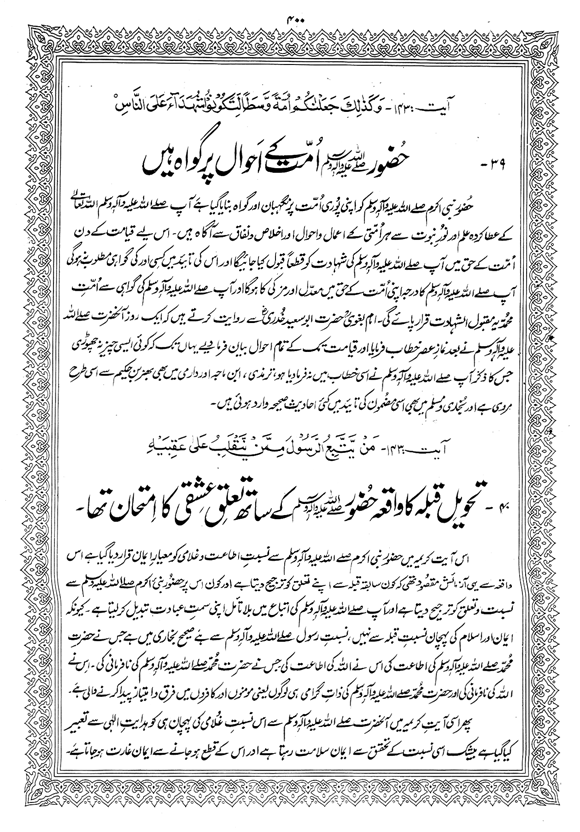 ۴۰۰
آیت:۱۴۳- وَكَذٰلِكَ جَعَلْنٰكُمْ اُمَّةً وَّسَطًا لِّتَكُوْنُوْا شُهَدَآءَ عَلَى النَّاسِ
۳۹- حضور صلى الله عليه وآلہٖ وسلم اُمّت کے احوال پر گواہ ہیں
حضور نبی اکرم صلے اللہ علیہ وآلہٖ وسلم کو اپنی پوری اُمّت پر نگہبان اور گواہ بنایا گیا ہے آپ صلے اللہ علیہ وآلہٖ وسلم اللہ تعالیٰ
کے عطا کردہ علم اور نورِ نبوت سے ہر اُمتی کے اعمال و احوال اور اخلاص و نفاق سے آگاہ ہیں۔ اس لیے قیامت کے دن
اُمّت کے حق میں آپ صلے اللہ علیہ وآلہٖ وسلم کی شہادت کو قطعاً قبول کیا جائیگا اور اس کی تائید میں کسی اور کی گواہی مطلوب نہ ہوگی
آپ صلے اللہ علیہ وآلہٖ وسلم کا درجہ اپنی اُمّت کے حق میں معدّل اور مزکی کا ہوگا اور آپ صلے اللہ علیہ وآلہٖ وسلم کی گواہی سے اُمّتِ
محمدیہ مقبول الشہادت قرار پائے گی۔ امام بغویؒ حضرت ابو سعید خدریؓ سے روایت کرتے ہیں کہ ایک روز آنحضرت صلے اللہ
علیہ وآلہٖ وسلم نے بعد نماز عصر خطاب فرمایا اور قیامت تک کے تمام احوال بیان فرما دیے یہاں تک کہ کوئی ایسی چیز نہ چھوڑی
جس کا ذکر آپ صلے اللہ علیہ وآلہٖ وسلم نے اسی خطاب میں نہ فرما دیا ہو ترمذی، ابن ماجہ اور دارمی میں بھی بھز بن حکیم سے اسی طرح
مروی ہے اور بخاری و مسلم میں بھی اسی مضمون کی تائید میں کئی احادیث صحیحہ وارد ہوئی ہیں۔
آیت:۱۴۳- مَنْ يَّتَّبِعُ الرَّسُوْلَ مِمَّنْ يَّنْقَلِبُ عَلٰى عَقِبَيْهِ
۴۰- تحویلِ قبلہ کا واقعہ حضور صلى الله عليه وآلہٖ وسلم کے ساتھ تعلقِ عشقی کا اِمتحان تھا۔
اس آیت کریمہ میں حضور نبی اکرم صلے اللہ علیہ وآلہٖ وسلم سے نسبتِ اطاعت و غلامی کو معیارِ ایمان قرار دیا گیا ہے اس
واقعہ سے یہی آزمائش مقصود تھی کہ کون سابقہ قبلہ سے اپنے تعلق کو ترجیح دیتا ہے اور کون اس پر حضور نبی اکرم صلے اللہ علیہ وآلہٖ وسلم سے
نسبت و تعلق کو ترجیح دیتا ہے اور آپ صلے اللہ علیہ وآلہٖ وسلم کی اتباع میں بلا تامل اپنی سمتِ عبادت تبدیل کر لیتا ہے۔ کیونکہ
ایمان اور اسلام کی پہچان نسبتِ قبلہ سے نہیں، نسبتِ رسول صلے اللہ علیہ وآلہٖ وسلم سے ہے صحیح بخاری میں ہے جس نے حضرت
محمد صلے اللہ علیہ وآلہٖ وسلم کی اطاعت کی اس نے اللہ کی اطاعت کی جس نے حضرت محمد صلے اللہ علیہ وآلہٖ وسلم کی نافرمانی کی۔ اس نے
اللہ کی نافرمانی کی اور حضرت محمد صلے اللہ علیہ وآلہٖ وسلم کی ذاتِ گرامی ہی لوگوں یعنی مومنوں اور کافروں میں فرق و امتیاز پیدا کرنے والی ہے۔
پھر اسی آیتِ کریمہ میں آنحضرت صلے اللہ علیہ وآلہٖ وسلم سے اس نسبتِ غلامی کی پہچان ہی کو ہدایتِ الٰہی سے تعبیر
کیا گیا ہے بیشک اسی نسبت کے تحقق سے ایمان سلامت رہتا ہے اور اس کے قطع ہو جانے سے ایمان غارت ہو جاتا ہے۔